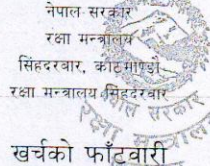 नेपाल सरकार
रक्षा मन्त्रालय
सिंहदरबार, काठमाण्डौ
रक्षा मन्त्रालय सिंहदरबार
नेपाल सरकार
रक्षा मन्त्रालय
खर्चको फाँटवारी